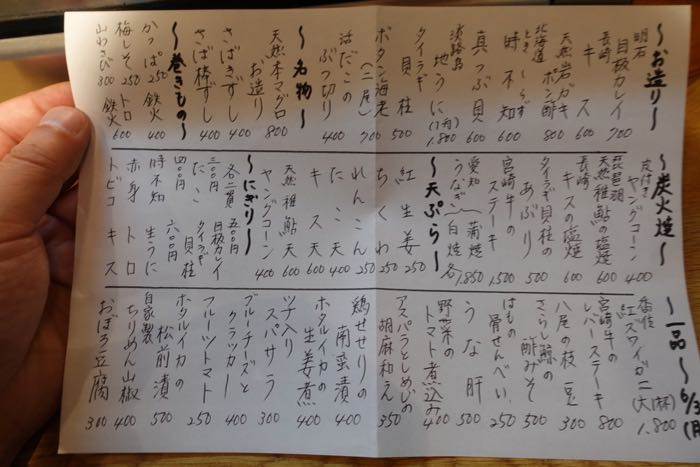 〜お造り〜
明石 目板カレイ 700
長崎 キス 600
天然岩ガキ ポン酢 800
北海道 ときしらず 時不知 600
真つぶ貝 600
淡路島 地うに(1舟) 1,800
タイラギ 貝柱 500
ボタン海老(二尾) 700
活だこのぶつ切り 400
〜名物〜
天然本マグロお造り 800
さばきずし 400
さば棒ずし 400
〜巻きもの〜
かっぱ 250 鉄火 400
梅しそ 250 トロ鉄火 600
山わさび 300
〜炭火焼〜
皮付き ヤングコーン 400
琵琶湖 天然稚鮎の塩焼 600
長崎 キスの塩焼 600
タイラギ貝柱のあぶり 500
宮崎牛のステーキ 1,500
愛知 うなぎ 蒲焼 白焼 各1,850
〜天ぷら〜
紅生姜 250
ちくわ 250
れんこん 250
たこ天 400
キス天 600
天然稚鮎天 600
ヤングコーン 400
〜にぎり〜
各二貫 五〇〇円
三〇〇円 目板カレイ
たこ タイラギ貝柱
四〇〇円 六〇〇円
時不知 生うに
赤身 トロ
トビコ キス
〜一品〜 6/3(月)
香住 紅ズワイガニ(大)(1杯) 1,800
宮崎牛のレバーステーキ 800
八尾の枝豆 300
さらし鯨の酢みそ 500
はもの骨せんべい 250
うな肝 500
野菜のトマト煮込み 400
アスパラとしめじの胡麻和え 350
鶏せせりの南蛮漬 400
ホタルイカの生姜煮 400
ツナ入りスパサラ 300
ブルーチーズとクラッカー 400
フルーツトマト 250
ホタルイカの松前漬 500
自家製 ちりめん山椒 400
おぼろ豆腐 300